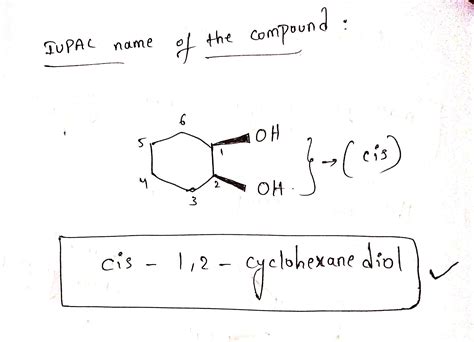 IUPAC name of the compound :
6
5 1 OH
4 2 OH } → (cis)
3
cis - 1,2 - cyclohexane diol ✓